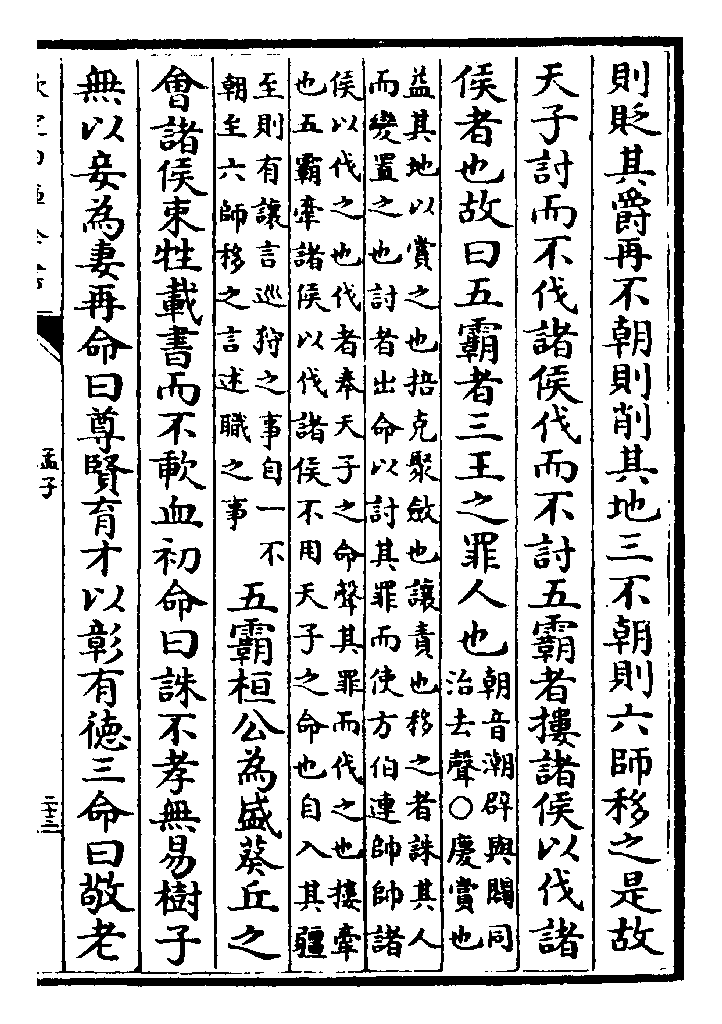 則貶其爵再不朝則削其地三不朝則六師移之是故
天子討而不伐諸侯伐而不討五霸者摟諸侯以伐諸
侯者也故曰五霸者三王之罪人也
朝音潮辟與闢同
治去聲○慶賞也
益其地以賞之也掊克聚斂也讓責也移之者誅其人
而變置之也討者出命以討其罪而使方伯連帥帥諸
侯以伐之也伐者奉天子之命聲其罪而伐之也摟牽
也五霸牽諸侯以伐諸侯不用天子之命也自入其疆
至則有讓言巡狩之事自一不
朝至六師移之言述職之事
五霸桓公為盛葵丘之
會諸侯束牲載書而不歃血初命曰誅不孝無易樹子
無以妾為妻再命曰尊賢育才以彰有德三命曰敬老
孟子
二十三